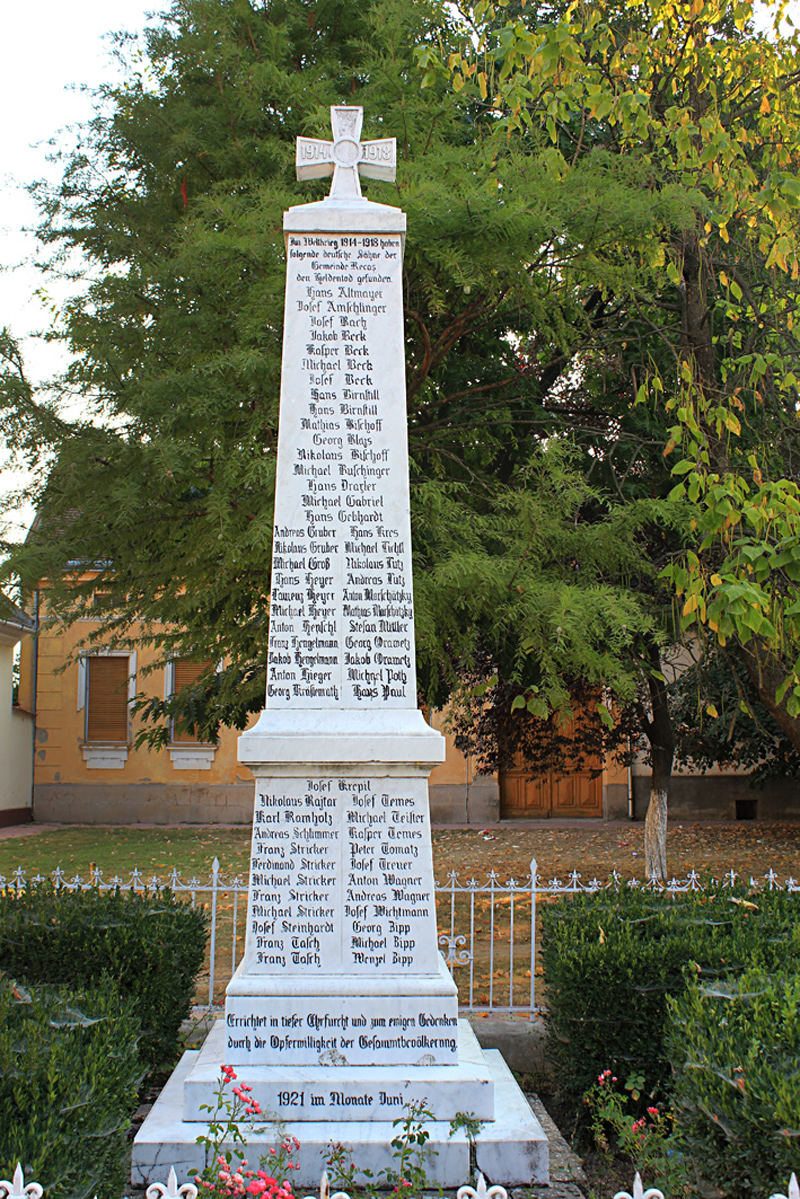 1914 1918
Im Weltkrieg 1914-1918 haben
folgende deutsche Söhne der
Gemeinde Recas
den Heldentod gefunden.
Hans Altmayer
Josef Amschlinger
Josef Bach
Jakob Beck
Kasper Beck
Michael Beck
Josef Beck
Hans Birnstill
Hans Birnstill
Mathias Bischoff
Georg Blays
Nikolaus Bischoff
Michael Buschinger
Hans Draxler
Michael Gabriel
Hans Gebhardt
Andreas Gruber Hans Kres
Nikolaus Gruber Michael Lichtl
Michael Groß Nikolaus Lutz
Hans Heyer Andreas Lutz
Laurenz Heyer Anton Marschützky
Michael Heyer Mathias Marschützky
Anton Henschl Stefan Müller
Franz Hengelmann Georg Orametz
Jakob Hengelmann Jakob Orametz
Anton Hieger Michael Poth
Georg Kraßemath Hans Paul
Josef Krepil
Nikolaus Rajtar Josef Temes
Karl Romholz Michael Teister
Andreas Schlimmer Kasper Temes
Franz Stricker Peter Tomatz
Ferdinand Stricker Josef Treuer
Michael Stricker Anton Wagner
Franz Stricker Andreas Wagner
Michael Stricker Josef Wichtmann
Josef Steinhardt Georg Zipp
Franz Tasch Michael Zipp
Franz Tasch Wenzel Zipp
Errichtet in tiefer Ehrfurcht und zum ewigen Gedenken
durch die Opferwilligkeit der Gesamtbevölkerung.
1921 im Monate Juni